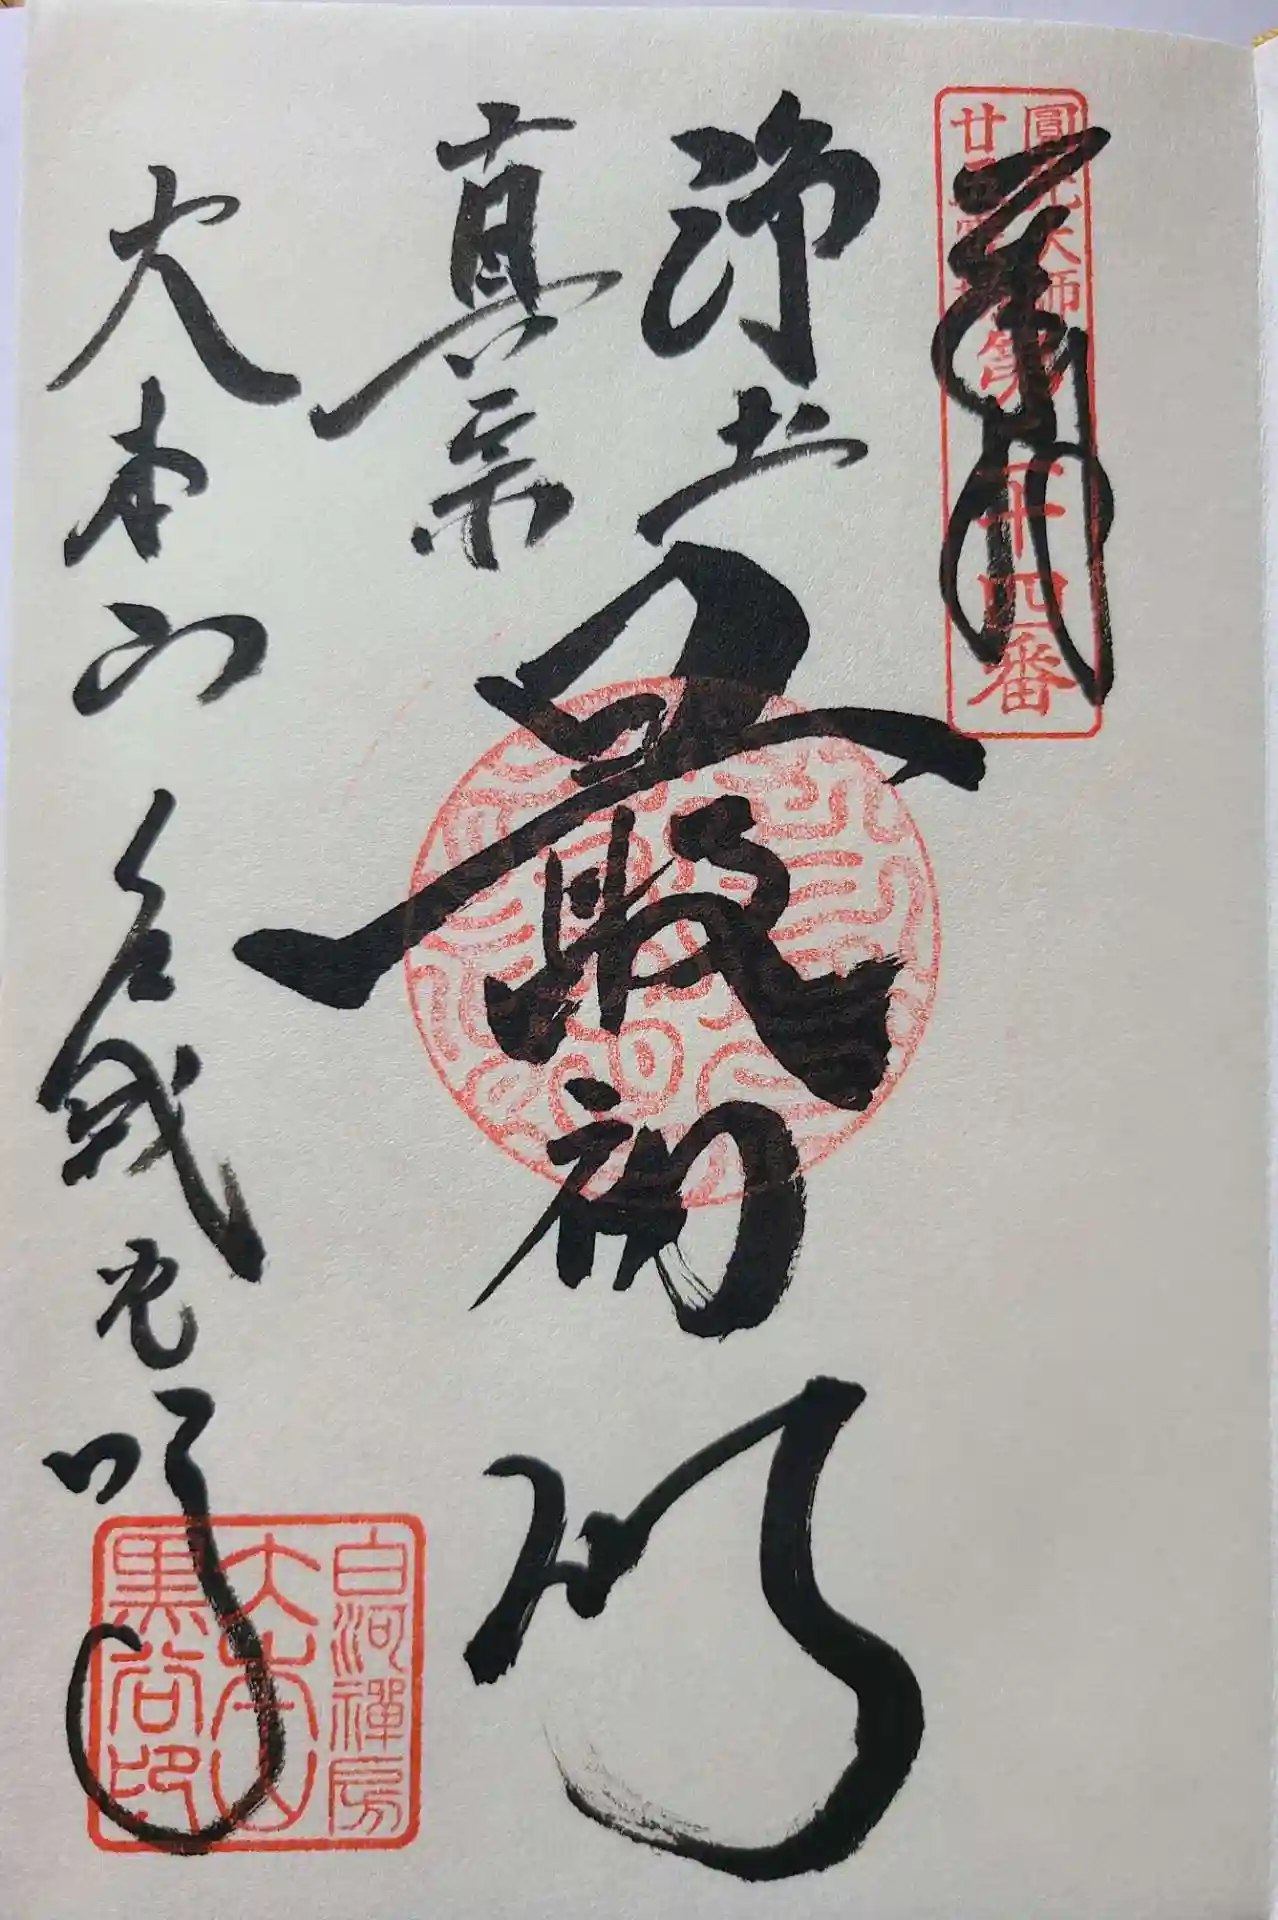 奉拝
圓光大師
廿五霊場第二十四番
浄土
真宗
最初門
大本山 金戒光明寺
白河禅房
大本山
黒谷印